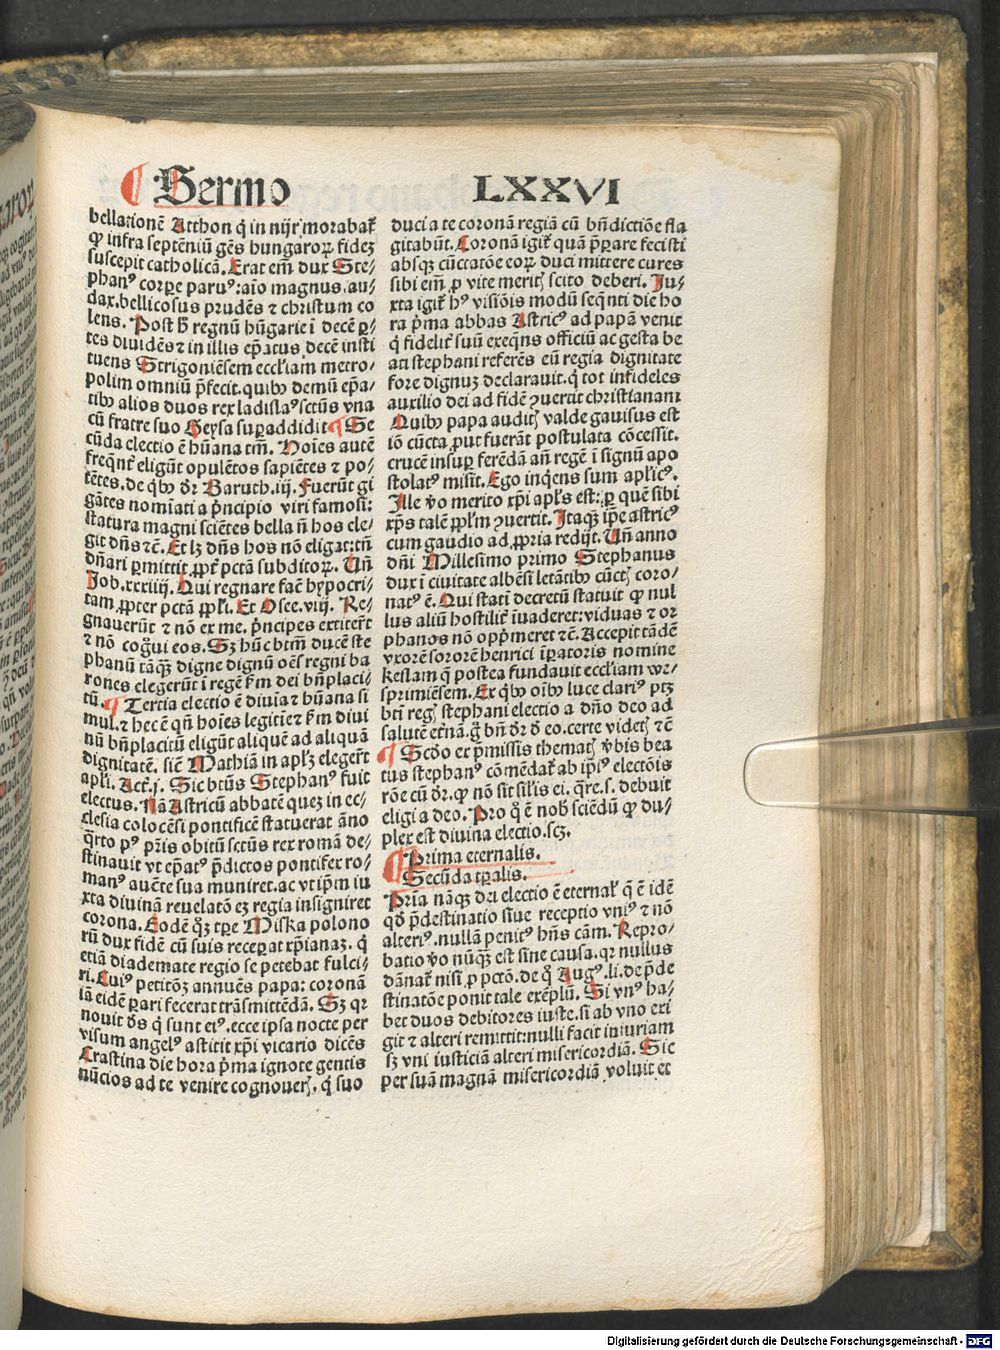 ¶ Sermo LXXVI
bellationē Atthon q̄ in nijr̄ morabat̄
ꝙ infra septēniū gēs hungaroꝝ fidez
suscepit catholicā. Erat em̄ dux Ste⸗
phanꝰ corꝑe paruꝰ: aīo magnus. au⸗
dax. bellicosus prudēs ⁊ christum co
lens. Post h̄ regnū hūgarie ī decē ꝑ⸗
tes diuidēs ⁊ in illis ep̄atus decē insti
tuens Strigoniēsem eccl'iam metro⸗
polim omniū p̄fecit. quibꝰ demū ep̄a⸗
tibꝰ alios duos rex ladislaꝰ sctūs vna
cū fratre suo Geysa suꝑaddidit ¶ Se
cūda electio ē hūana tm̄. Hoīes autē
freqn̄t̄ eligūt opulētos sapiētes ⁊ po⸗
tētes. de qͥbꝰ dr̄ Baruth. iij. Fuerūt gi
gātes nomīati a p̄ncipio viri famosi:
statura magni sciētes bella n̄ hos ele⸗
git dn̄s ⁊c̄. Et lꝫ dn̄s hos nō eligat: tn̄
dn̄ari ꝑmittit ꝓpt̄ pctā subditoꝝ. Un̄
Job. xxxiiij. Qui regnare fac̄ hypocri⸗
tam ꝓpter pctā ppl'i. Et Osee. viij. Re⸗
gnauerūt ⁊ nō ex me. p̄ncipes extiter̄t
⁊ nō coḡui eos. Sꝫ hūc btm̄ ducē ste
phanū tāqꝫ digne dignū oēs regni ba
rones elegerūt ī regē ẜm dei bn̄placi⸗
tū. ¶ Tertia electio ē diuīa ⁊ hūana si
mul. ⁊ hec ē qn̄ hoīes legitie ⁊ ẜm diui
nū bn̄placitū eligūt aliquē ad aliquā
dignitatē. sicē Mathiā in apl'ꝫ elegert̄
apl'i. Act̄. j. Sic btūs Stephanꝰ fuit
electus. Nā Astricū abbatē quez in ec⸗
clesia colocēsi pontificē statuerat āno
qͣrto pꝰ pr̄is obitū sctūs rex romā de⸗
stinauit vt ep̄atꝰ p̄dictos pontifex ro⸗
manꝰ aucte sua muniret. ac vt ip̄m iu
xta diuinā reuelatōe3 regia insigniret
corona. Eodē qꝫ tꝑe Miska polono
rū dux fidē cū suis receꝑat xp̄ianaꝫ. q̄
etiā diademate regio se petebat fulci⸗
ri. Cuiꝰ petitōꝫ annuēs papa: coronā
iā eidē ꝑari fecerat trāsmittēdā. Sꝫ qꝛ
nouit ds̄ q̄ sunt eiꝰ. ecce ipsa nocte per
visum angelꝰ astitit xp̄i vicario dicēs
Crastina die hora p̄ma ignote gentis
nūcios ad te venire cognoueris. q̄ suo
duci a te coronā regiā cū bn̄dictiōe fla
gitabūt. Coronā igit̄ quā p̄ꝑare fecisti
absqꝫ cūctatōe eoꝝ duci mittere cures
sibi em̄ ꝓ vite meritis scito deberi. Iu⸗
xta igit̄ hꝰ visiōis modū seqn̄ti die ho
ra p̄ma abbas Astricꝰ ad papā venit
q̄ fidelit̄ suū exeqn̄s officiū ac gesta be
ati stephani referēs eū regia dignitate
fore dignuꝫ declarauit. q̄ tot infideles
auxilio dei ad fidē ꝯuertit christianam
Quibꝰ papa auditis valde gauisus est
iō cūcta put fuerāt postulata cōcessit.
crucē insuꝑ ferēdā an̄ regē ī signū apo
stolatꝰ misit. Ego inqͥens sum apl'icꝰ.
Ille v̄o merito xp̄i apl's est: ꝑ quē sibi
xp̄s talē ppl'm ꝯuertit. Itaqꝫ ip̄e astricꝰ
cum gaudio ad ꝓpria redijt. Un̄ anno
dn̄i Millesimo primo Stephanus
dux ī ciuitate albēsi letātibꝰ cūctis coro⸗
natꝰ ē. Qui statī decretū statuit ꝙ nul
lus aliū hostilit̄ īuaderet: viduas ⁊ or
phanos nō opp̄meret ⁊c̄. Accepit tādē
vxorē sororē henrici īꝑatoris nomine
keslam q̄ postea fundauit eccl'iam wes⸗
sprimiēsem. Ex qͥbꝰ oībꝰ luce clariꝰ ptꝫ
bt̄i regis stephani electio a dn̄o deo ad
salutē et̄nā. ḡ bn̄ dr̄ ꝺ eo. certe videtis ⁊c̄
¶ Scd̄o ex p̄missis thematis v̄bis bea
tus stephanꝰ cōmēdat̄ ab ip̄iꝰ electōis
rōe cū dr̄. ꝙ nō sit sil'is ei. qͣre. s. debuit
eligi a deo. Pro qͦ ē nobis sciēdū ꝙ du⸗
plex est diuina electio. scꝫ.
¶ Prima eternalis.
Secūda tꝑalis.
Prīa nāqꝫ dei electio ē eternal' q̄ ē idē
qd̄ p̄destinatio siue receptio vniꝰ ⁊ nō
alteriꝰ. nullā penitꝰ hn̄s cām. Repro⸗
batio v̄o nūqꝫ est sine causa. qꝛ nullus
dānat̄ nisi ꝓ pctō. de qͦ Augꝰ. li. de p̄de
stinatōe ponit tale exēplū. Si vnꝰ ha⸗
bet duos debitores iuste. si ab vno exi
git ⁊ alteri remittit: nulli facit iniuriam
sꝫ vni iusticiā alteri misericordiā. Sic
per suā magnā misericordiā voluit et
Digitalisierung gefördert durch die Deutsche Forschungsgemeinschaft - DFG